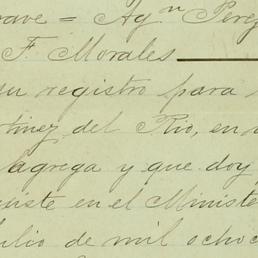 rave = Agn Perez
F. Morales
su registro para
tinez del Rio, en
agrega y que doy
uiste en el Ministe
ulio de mil ochoc